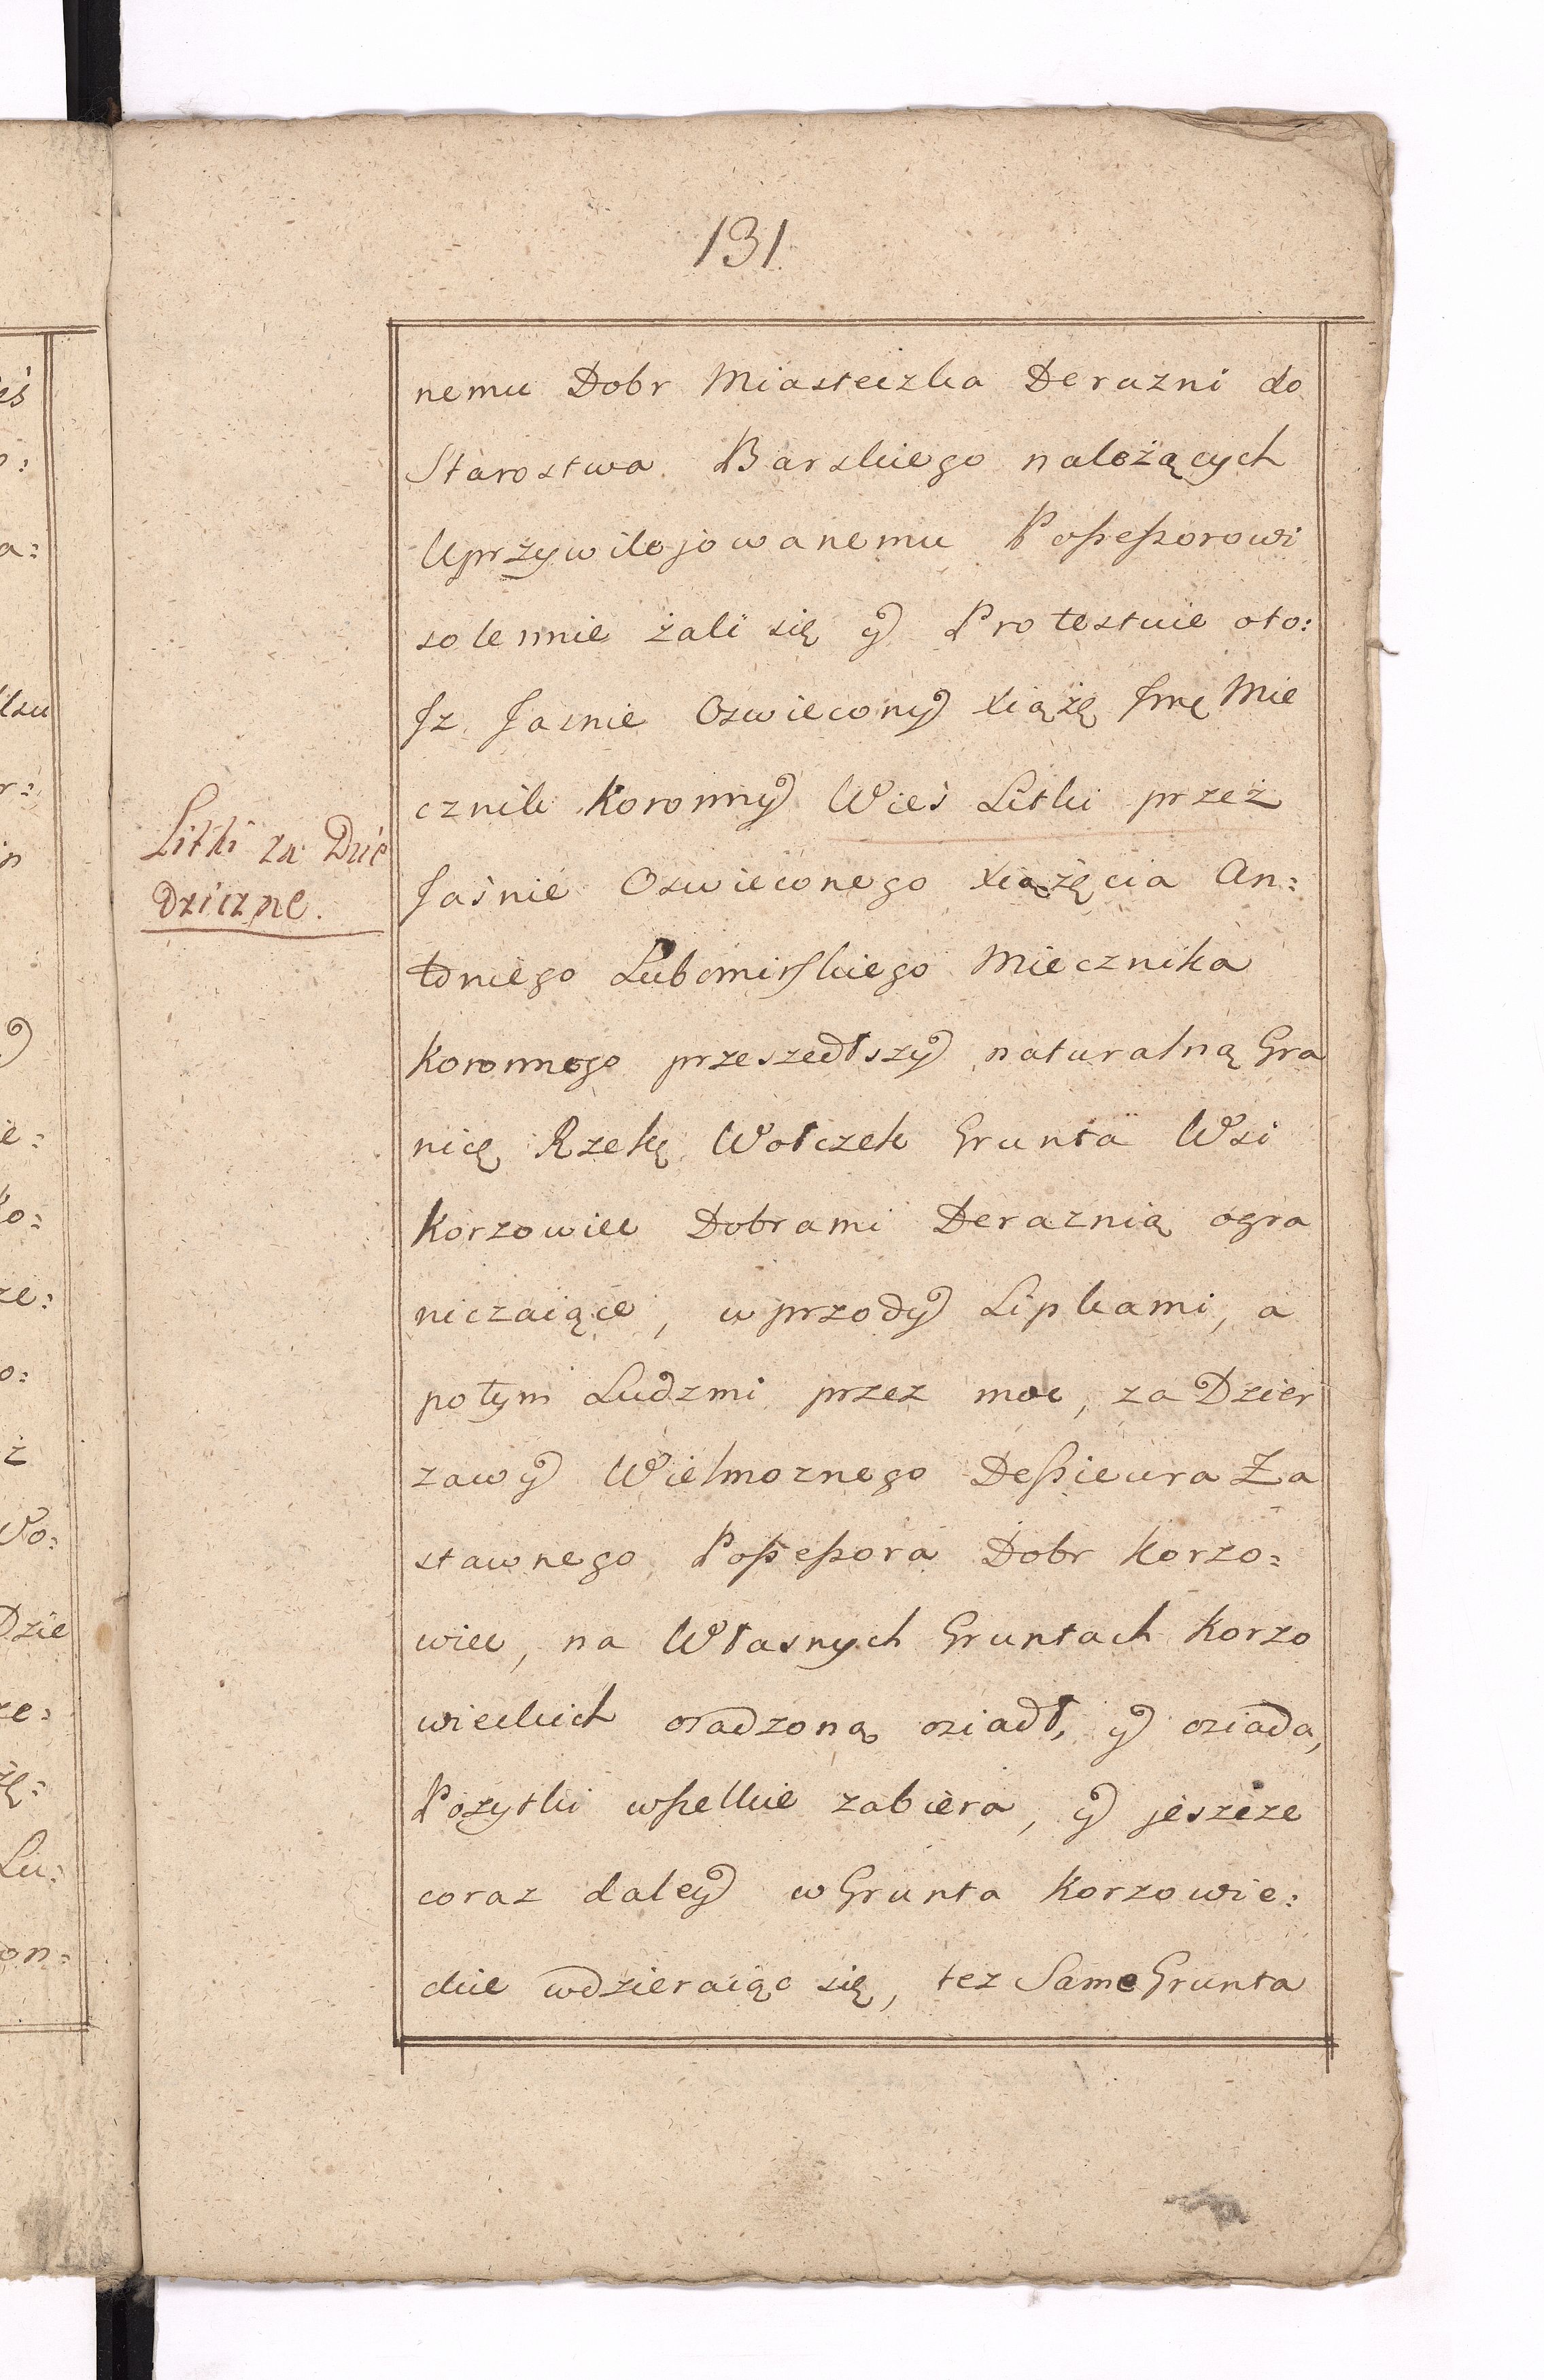 131
nemu Dobr Miasteczka Derazni do
Starostwa Barskiego należących
Uprzywilejowanemu Poßeßorowi
solennie żali się y Protestuie oto:
Jż Jasnie Oswiecony Xiążę Jmę Mie
cznik Koronny Wieś Litki przez
Jaśnie Oswieconego Xiążęcia An:
toniego Lubomirskiego Miecznika
Koronnego przeszedłszy naturalną Gra
nicę Rzekę Wołczek Grunta Wsi
Korzowiec Dobrami Deraznią ogra
niczaiące, wprzody Lipkami, a
potym Ludzmi przez moc, za Dzier
zawy Wielmoznego Deßieura Za
stawnego Poßeßora Dobr Korzo:
wiec, na Własnych Gruntach Korzo
wieckich osadzoną osiadł, y osiada,
Pozytki wßelkie zabiera, y jeszcze
coraz daley w Grunta Korzowie:
ckie wdzieraiąc się, tez Same Grunta
Litki za Dzie
dziczne.